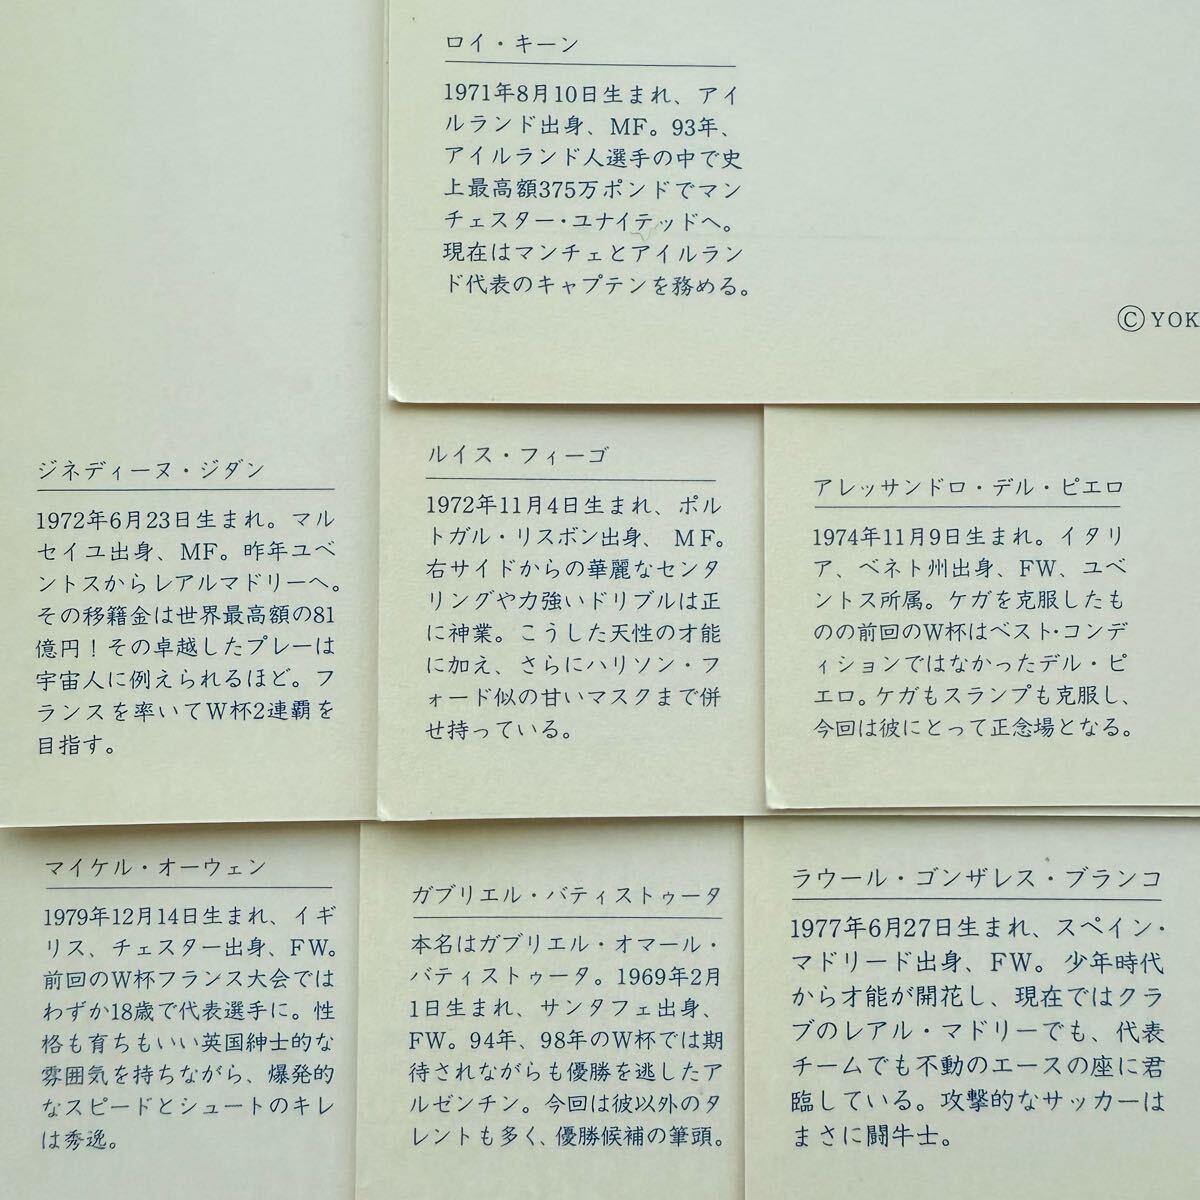 ロイ・キーン
1971年8月10日生まれ、アイ
ルランド出身、MF。93年、
アイルランド人選手の中で史
上最高額375万ポンドでマン
チェスター・ユナイテッドへ。
現在はマンチェとアイルラン
ド代表のキャプテンを務める。
Ⓒ YOK
ジネディーヌ・ジダン
1972年6月23日生まれ。マル
セイユ出身、MF。昨年ユベ
ントスからレアルマドリーへ。
その移籍金は世界最高額の81
億円！その卓越したプレーは
宇宙人に例えられるほど。フ
ランスを率いてW杯2連覇を
目指す。
ルイス・フィーゴ
1972年11月4日生まれ、ポル
トガル・リスボン出身、MF。
右サイドからの華麗なセンタ
リングや力強いドリブルは正
に神業。こうした天性の才能
に加え、さらにハリソン・フ
ォード似の甘いマスクまで併
せ持っている。
アレッサンドロ・デル・ピエロ
1974年11月9日生まれ。イタリ
ア、ベネト州出身、FW、ユベ
ントス所属。ケガを克服したも
のの前回のW杯はベスト・コンデ
ィションではなかったデル・ピ
エロ。ケガもスランプも克服し、
今回は彼にとって正念場となる。
マイケル・オーウェン
1979年12月14日生まれ、イギ
リス、チェスター出身、FW。
前回のW杯フランス大会では
わずか18歳で代表選手に。性
格も育ちもいい英国紳士的な
雰囲気を持ちながら、爆発的
なスピードとシュートのキレ
は秀逸。
ガブリエル・バティストゥータ
本名はガブリエル・オマール・
バティストゥータ。1969年2月
1日生まれ、サンタフェ出身、
FW。94年、98年のW杯では期
待されながらも優勝を逃したア
ルゼンチン。今回は彼以外のタ
レントも多く、優勝候補の筆頭。
ラウール・ゴンザレス・ブランコ
1977年6月27日生まれ、スペイン・
マドリード出身、FW。少年時代
から才能が開花し、現在ではクラ
ブのレアル・マドリーでも、代表
チームでも不動のエースの座に君
臨している。攻撃的なサッカーは
まさに闘牛士。